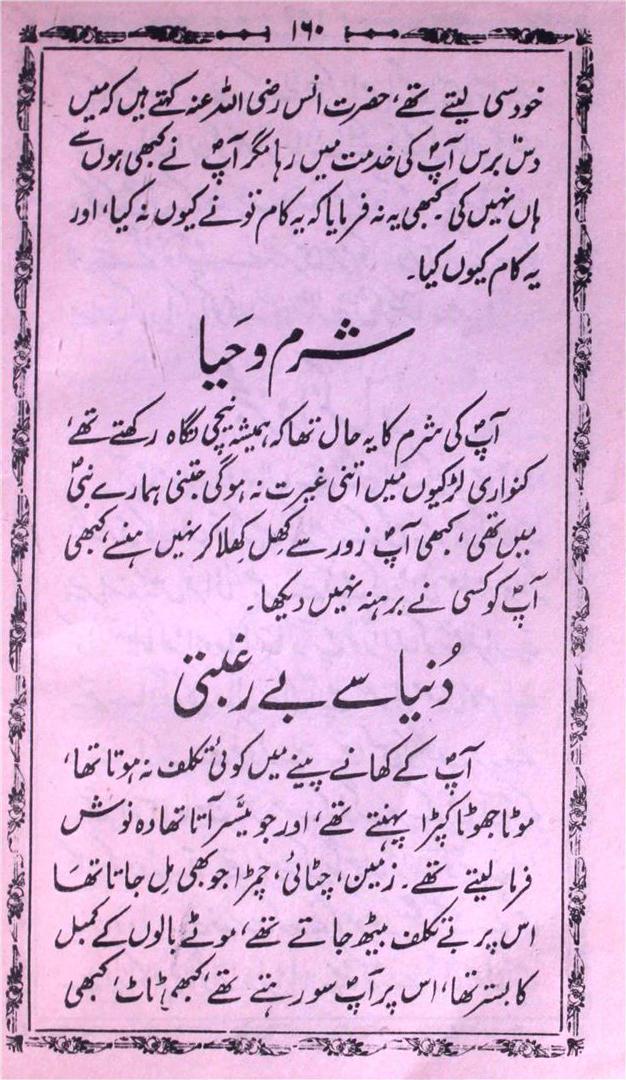 ۱۶۰
خود سی لیتے تھے، حضرت انس رضی اللہ عنہ کہتے ہیں کہ میں
دس برس آپؐ کی خدمت میں رہا مگر آپؐ نے کبھی ہوں سے
ہاں نہیں کی کبھی یہ نہ فرمایا کہ یہ کام تو نے کیوں نہ کیا، اور
یہ کام کیوں کیا۔
شرم و حَیا
آپؐ کی شرم کا یہ حال تھا کہ ہمیشہ نیچی نگاہ رکھتے تھے،
کنواری لڑکیوں میں اتنی غیرت نہ ہوگی جتنی ہمارے نبیؐ
میں تھی، کبھی آپؐ زور سے کھِل کھِلا کر نہیں ہنسے، کبھی
آپؐ کو کسی نے برہنہ نہیں دیکھا۔
دُنیا سے بے رغبتی
آپؐ کے کھانے پینے میں کوئی تکلف نہ ہوتا تھا،
موٹا جھوٹا کپڑا پہنتے تھے، اور جو میسَّر آتا تھا وہ نوش
فرما لیتے تھے۔ زمین، چٹائی، چمڑا جو بھی مِل جاتا تھا
اس پر بے تکلف بیٹھ جاتے تھے، موٹے بالوں کے کمبل
کا بستر تھا، اس پر آپؐ سو رہتے تھے، کبھی ٹاٹ، کبھی